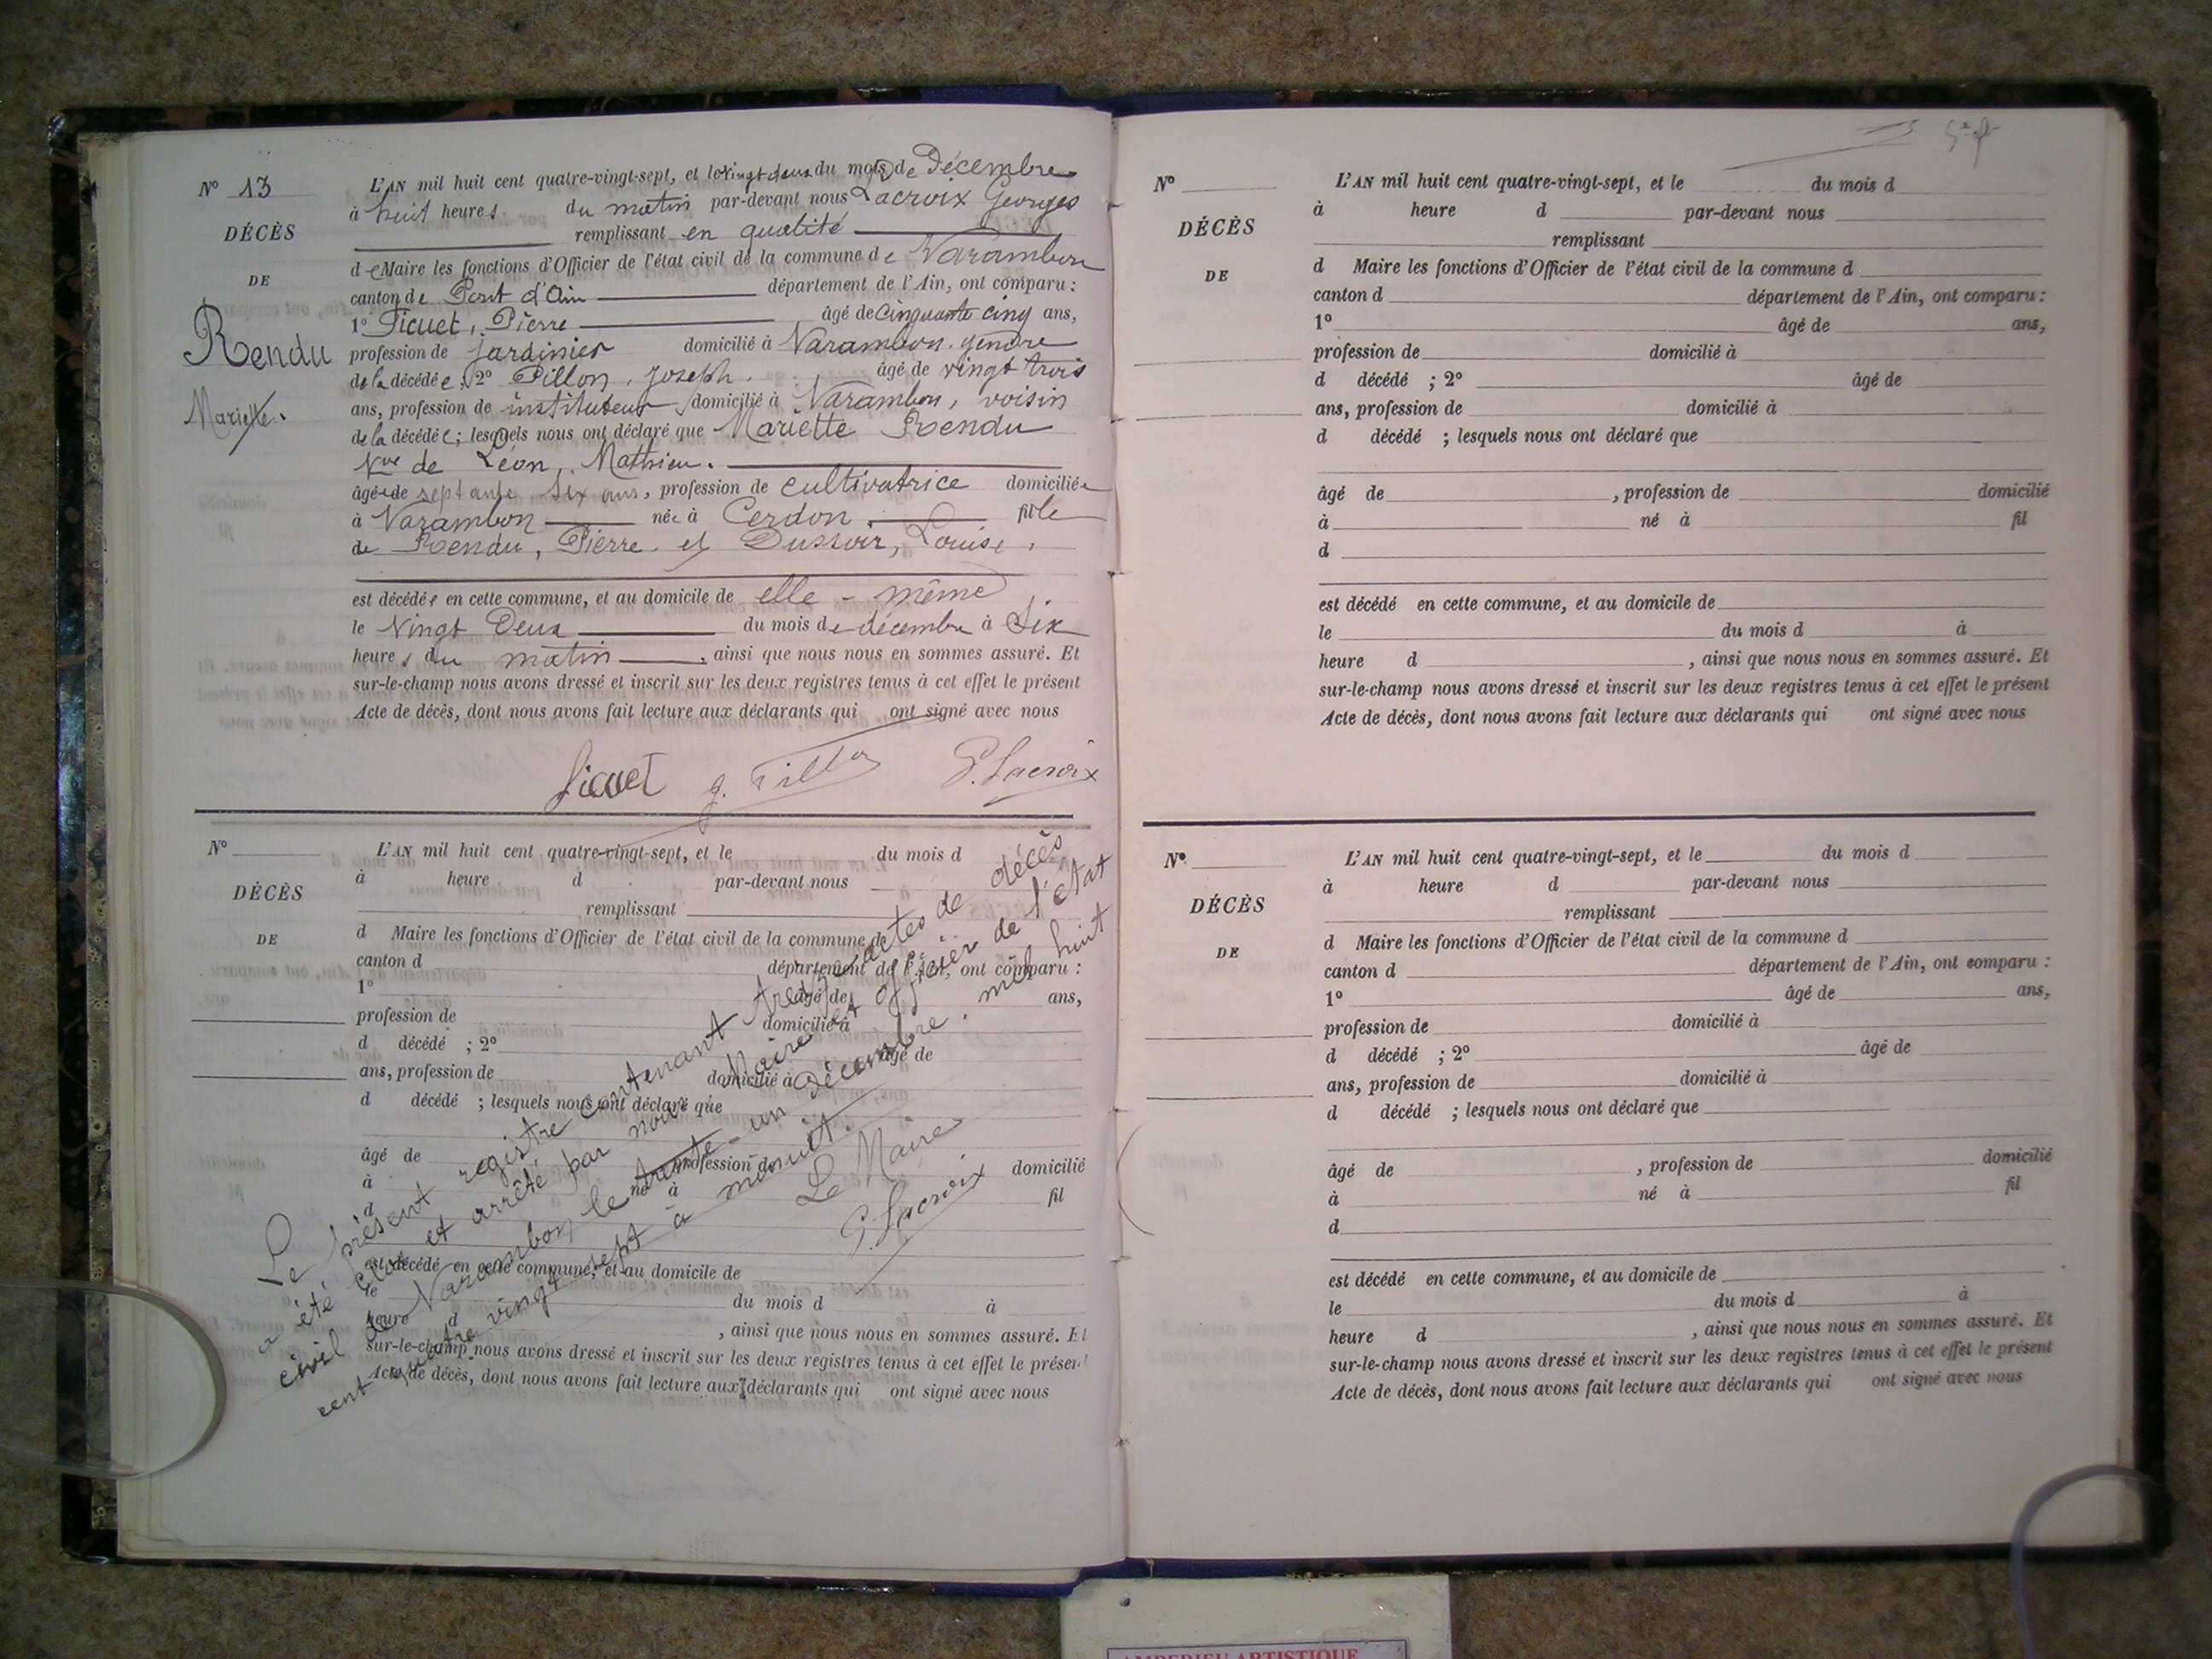 N° 13
DÉCÈS
DE
Rendu
Mariette.
L'AN mil huit cent quatre-vingt-sept, et le vingt deux du mois de Décembre
à huit heures du matin par-devant nous Lacroix Georges
remplissant en qualité
de Maire les fonctions d'Officier de l'état civil de la commune de Varambon
canton de Pont d'Ain département de l'Ain, ont comparu :
1° Picuet, Pierre âgé de cinquante cinq ans,
profession de jardinier domicilié à Varambon gendre
de la décédée ; 2° Pillon, Joseph. âgé de vingt trois
ans, profession de instituteur domicilié à Varambon, voisin
de la décédée ; lesquels nous ont déclaré que Mariette Rendu
Vve de Léon, Mathieu.
âgée de septante six ans, profession de cultivatrice domiciliée
à Varambon née à Cerdon, fille
de Rendu, Pierre et Louise.
est décédée en cette commune, et au domicile de elle-même
le Vingt Deux du mois de décembre à Six
heures du matin, ainsi que nous nous en sommes assuré. Et
sur-le-champ nous avons dressé et inscrit sur les deux registres tenus à cet effet le présent
Acte de décès, dont nous avons fait lecture aux déclarants qui ont signé avec nous
Picuet J. Pillon G. Lacroix
N°
DÉCÈS
DE
L'AN mil huit cent quatre-vingt-sept, et le du mois d
à heure d par-devant nous
remplissant
d Maire les fonctions d'Officier de l'état civil de la commune de
canton d département de l'Ain, ont comparu :
1° âgé de ans,
profession de domicilié à
d décédé ; 2° âgé de
ans, profession de domicilié à
d décédé ; lesquels nous ont déclaré que
âgé de profession de domicilié
à né à fil
d
est décédé en cette commune, et au domicile de
le du mois d à
heure d , ainsi que nous nous en sommes assuré. Et
sur-le-champ nous avons dressé et inscrit sur les deux registres tenus à cet effet le présent
Acte de décès, dont nous avons fait lecture aux déclarants qui ont signé avec nous
Le présent registre contenant treize actes de décès
a été clos et arrêté par nous Maire et officier de l'état
civil de Varambon le trente-un décembre mil huit
cent quatre vingt sept à minuit.
Le Maire
G. Lacroix
N°
DÉCÈS
DE
L'AN mil huit cent quatre-vingt-sept, et le du mois d
à heure d par-devant nous
remplissant
d Maire les fonctions d'Officier de l'état civil de la commune d
canton d département de l'Ain, ont comparu :
1° âgé de ans,
profession de domicilié à
d décédé ; 2° âgé de
ans, profession de domicilié à
d décédé ; lesquels nous ont déclaré que
âgé de , profession de domicilié
à né à fil
d
est décédé en cette commune, et au domicile de
le du mois d à
heure d , ainsi que nous nous en sommes assuré. Et
sur-le-champ nous avons dressé et inscrit sur les deux registres tenus à cet effet le présent
Acte de décès, dont nous avons fait lecture aux déclarants qui ont signé avec nous
N°
DÉCÈS
DE
L'AN mil huit cent quatre-vingt-sept, et le du mois d
à heure d par-devant nous
remplissant
d Maire les fonctions d'Officier de l'état civil de la commune d
canton d département de l'Ain, ont comparu :
1° âgé de ans,
profession de domicilié à
d décédé ; 2° âgé de
ans, profession de domicilié à
d décédé ; lesquels nous ont déclaré que
âgé de , profession de domicilié
à né à fil
d
est décédé en cette commune, et au domicile de
le du mois d à
heure d , ainsi que nous nous en sommes assuré. Et
sur-le-champ nous avons dressé et inscrit sur les deux registres tenus à cet effet le présent
Acte de décès, dont nous avons fait lecture aux déclarants qui ont signé avec nous